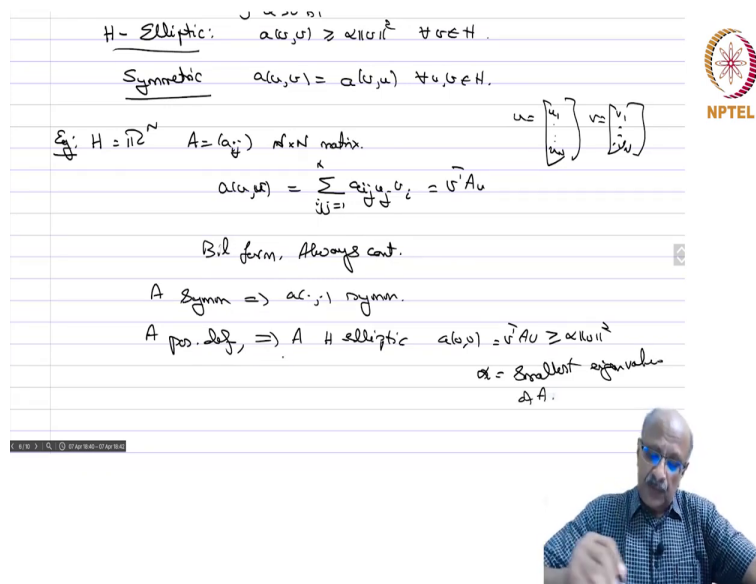 H- Elliptic: a(v,v) ≥ α‖v‖² ∀ v∈H.
Symmetric a(u,v) = a(v,u) ∀ u,v∈H.
NPTEL
u = [u₁ ⋮ u_N] v = [v₁ ⋮ v_N]
Eg: H = ℝ^N A = (a_ij) N×N matrix.
a(u,v) = Σ_{i,j=1}^N a_ij u_j v_i = v^T A u
Bil form, Always cont.
A Symm => a(·,·) symm.
A pos. def, => A H elliptic a(v,v) = v^T A v ≥ α‖v‖²
α = Smallest eigenvalue
of A.
6/10 07 Apr 18:40 - 07 Apr 18:42